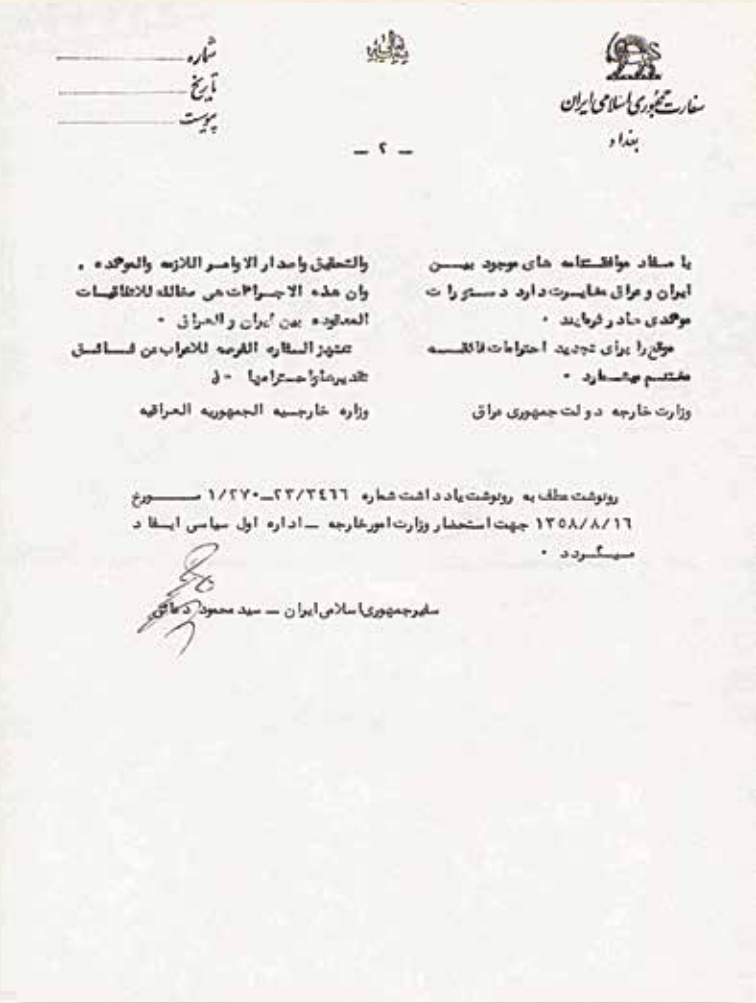 سفارت جمهوری اسلامی ایران
بغداد
شماره
تاریخ
پیوست
ـ ۲ ـ
با مفاد موافقتنامه های موجود بیـــن
ایران و عراق مغایـرت دارد دستورا ت
موکدی صادر فرمایند ۰
موقع را برای تجدید احترامات فائقـــه
مغتنـم میشمـارد ۰
وزارت خارجه دولت جمهوری عراق
والتحقیق واصدار الاوامـر اللازمه والموکده ۰
وان هذه الاجـراءات هی مخالفه للاتفاقیـات
المعقوده بین ایران و العراق ۰
تنتهز السفاره الفرصه للاعراب من فـــائـق
تقدیرها واحترامها ۰
وزاره خارجیه الجمهوریه العراقیه
رونوشت عطف به رونوشت یادداشت شماره ۲۳/۳٤٦٦ـ۱/۲۷۰ مـــورخ
۱۳۵۸/۸/۱٦ جهت استحضار وزارت امورخارجه ـ اداره اول سیاسی ایـفا د
میـگـردد ۰
سفیرجمهوری اسلامی ایران ـ سید محمود دعائی